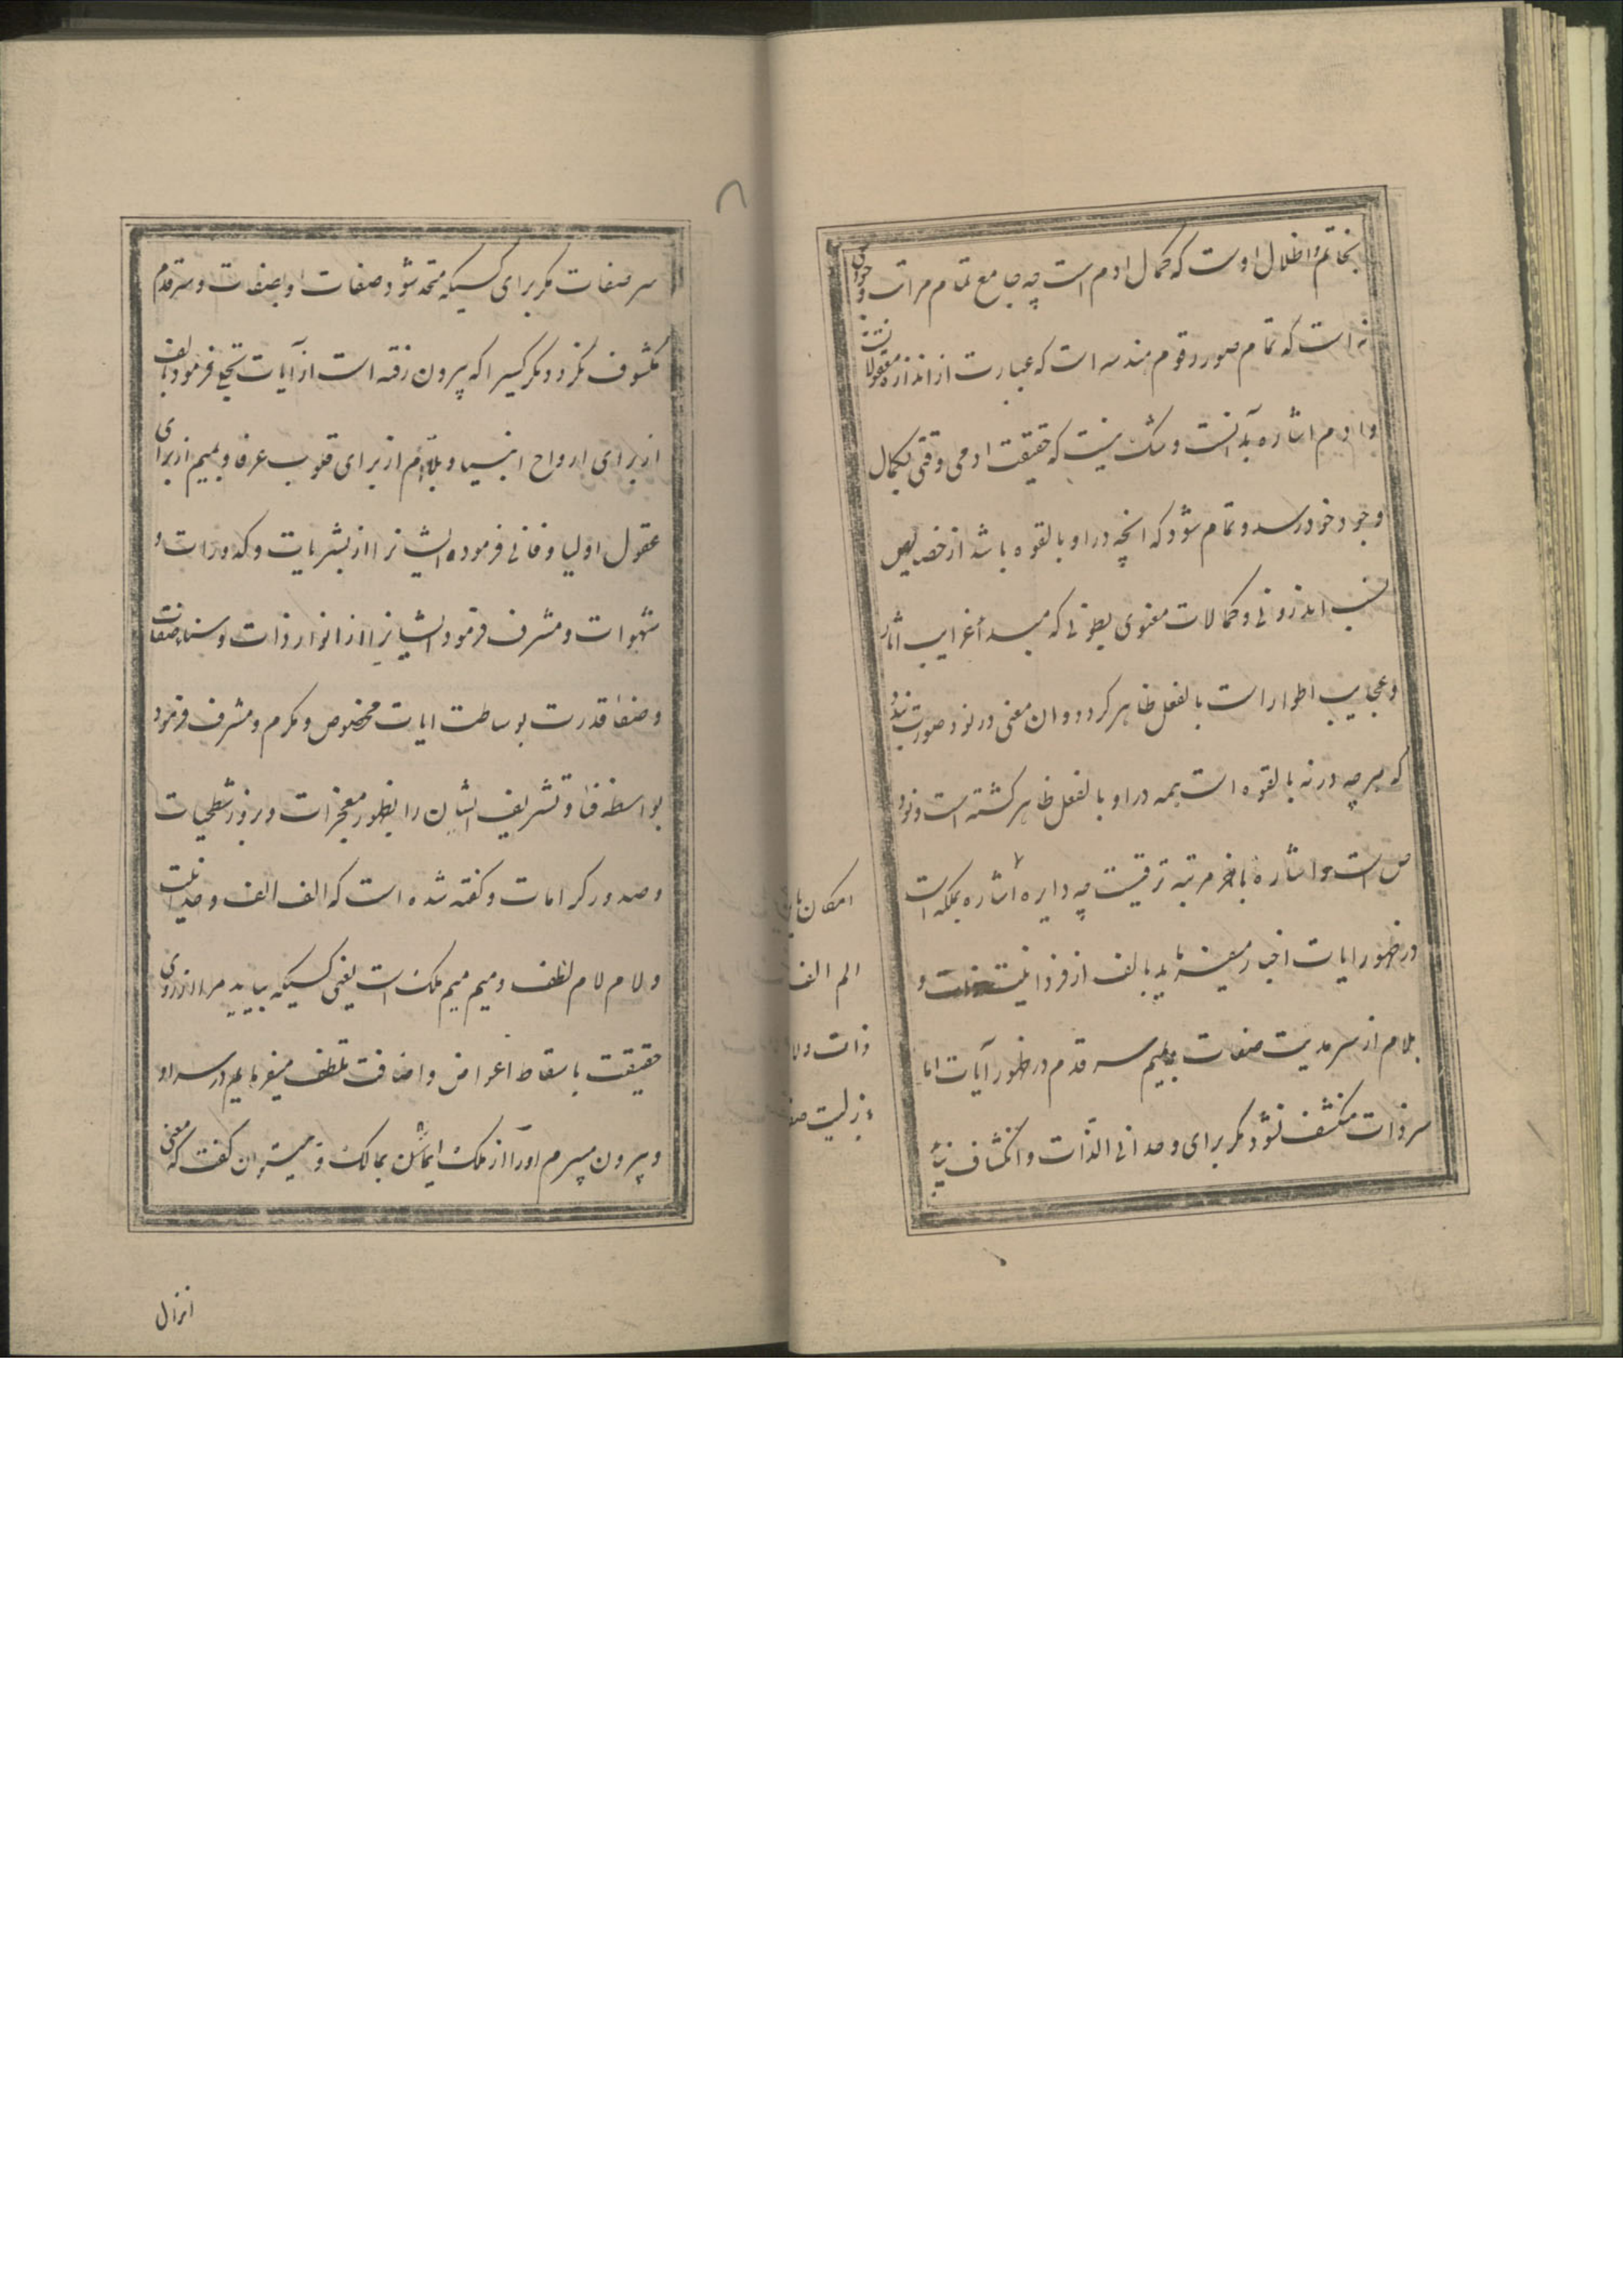 بخاتم واظلال اوست که کمال ادم است چه جامع تمام مراتب وجودی
نه است که تمام صور رقوم هندسه است که عبارت از اندازه معقولات
وادم اشاره بدانست وشک نیست که حقیقت ادمی وقتی بکمال
وجود خود رسد و تمام شود که انچه در او بالقوه باشد از خصایص
نسب اندرونی و کمالات معنوی بطونی که مبدأ غرایب اثار
وعجایب اطوار است بالفعل ظاهر کردد وان معنی در نود صورت بندد
که هرچه در نه بالقوه است همه در او بالفعل ظاهر کشته است ونود
ص است واشاره باخر مرتبه ترقیست چه دایره اشاره بملکه است
در ظهور ایات اخبار میفرماید بالف از فردانیت ذات و
بلام از سرمدیت صفات وبمیم سر قدم در ظهور آیات اما
سر ذات منکشف نشود مکر برای وحدانی الذات وانکشاف نیابد
امکان
الم الف
ذات ولا
سر صفات مکر برای کسیکه متحد شود صفات او بصفات وسر قدم
مکشوف نکردد مکر کسیرا که بیرون رفته است از آیات تجلی فرمود بالف
از برای ارواح انبیا و بلام از برای قلوب عرفا وبمیم از برای
عقول اولیا وفانی فرموده ایشانرا از بشریات وکدورات و
شهوات ومشرف فرمود ایشانرا از انوار ذات وسناء صفات
وصفاء قدرت بوساطت ایات مخصوص ومکرم ومشرف فرمود
بواسطه فنا وتشریف ایشان را بظهور معجزات وبروز شطحیات
وصدور کرامات وکفته شده است که الف الف وحدانیت
ولام لام لطف ومیم میم ملک است یعنی کسیکه بیابد مرا از روی
حقیقت باسقاط اعراض واضافت تلطف میفرمایم در سر او
وبیرون میبرم اورا از ملک ایشان بمالک و میتوان کفت که معنی
انزال